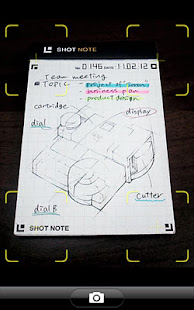 SHOT NOTE
No. 0146 DATE 11.02.12
Team meeting
TOPIC - project plan
- business plan
- product design
cartridge
display
dial
dial B
cutter
SHOT NOTE